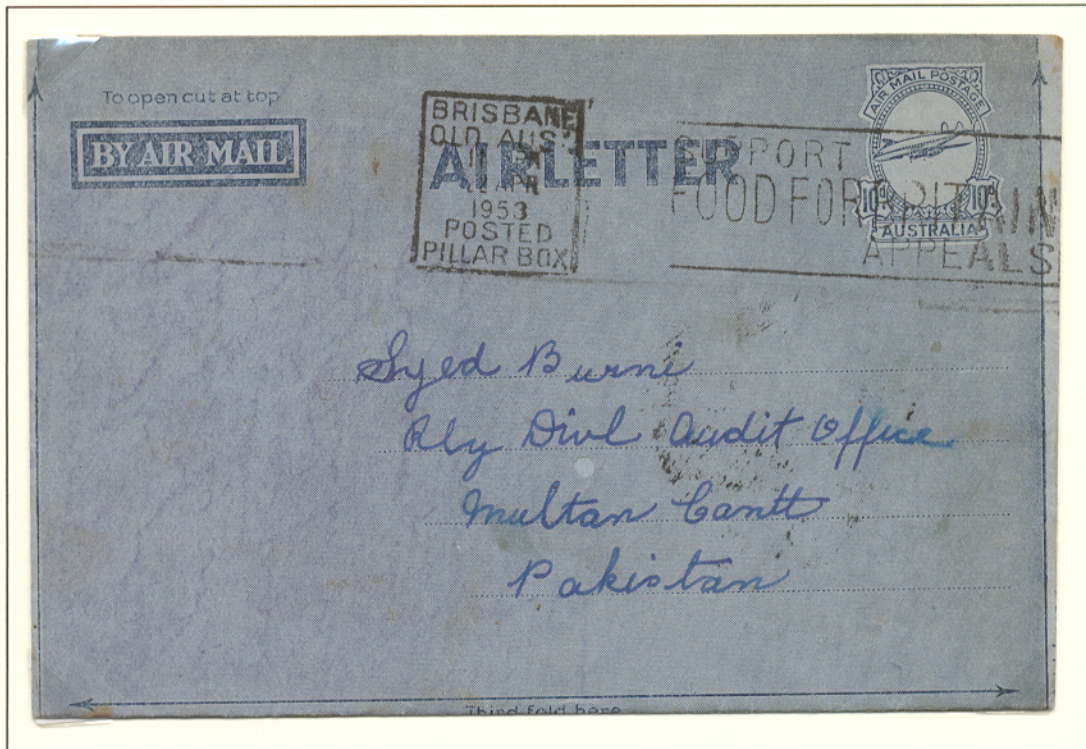 To open cut at top
BY AIR MAIL
AIR LETTER
BRISBANE
QLD. AUST.
1953
POSTED
PILLAR BOX
SUPPORT
FOOD FOR BRITAIN
APPEALS
AIR MAIL POSTAGE
10d 10d
AUSTRALIA
Syed Burni
Rly Divl Audit Office
Multan Cantt
Pakistan
Third fold here